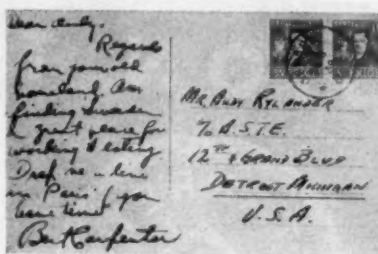 Dear Andy,
Regards
from your old
homeland. Am
finding Sweden
a great place for
working & eating
Drop me a line
in Paris if you
have time!
Ben Carpenter
MR. ANDY RYLANDER
% A.S.T.E.
12TH & GRAND BLVD
DETROIT MICHIGAN
U.S.A.